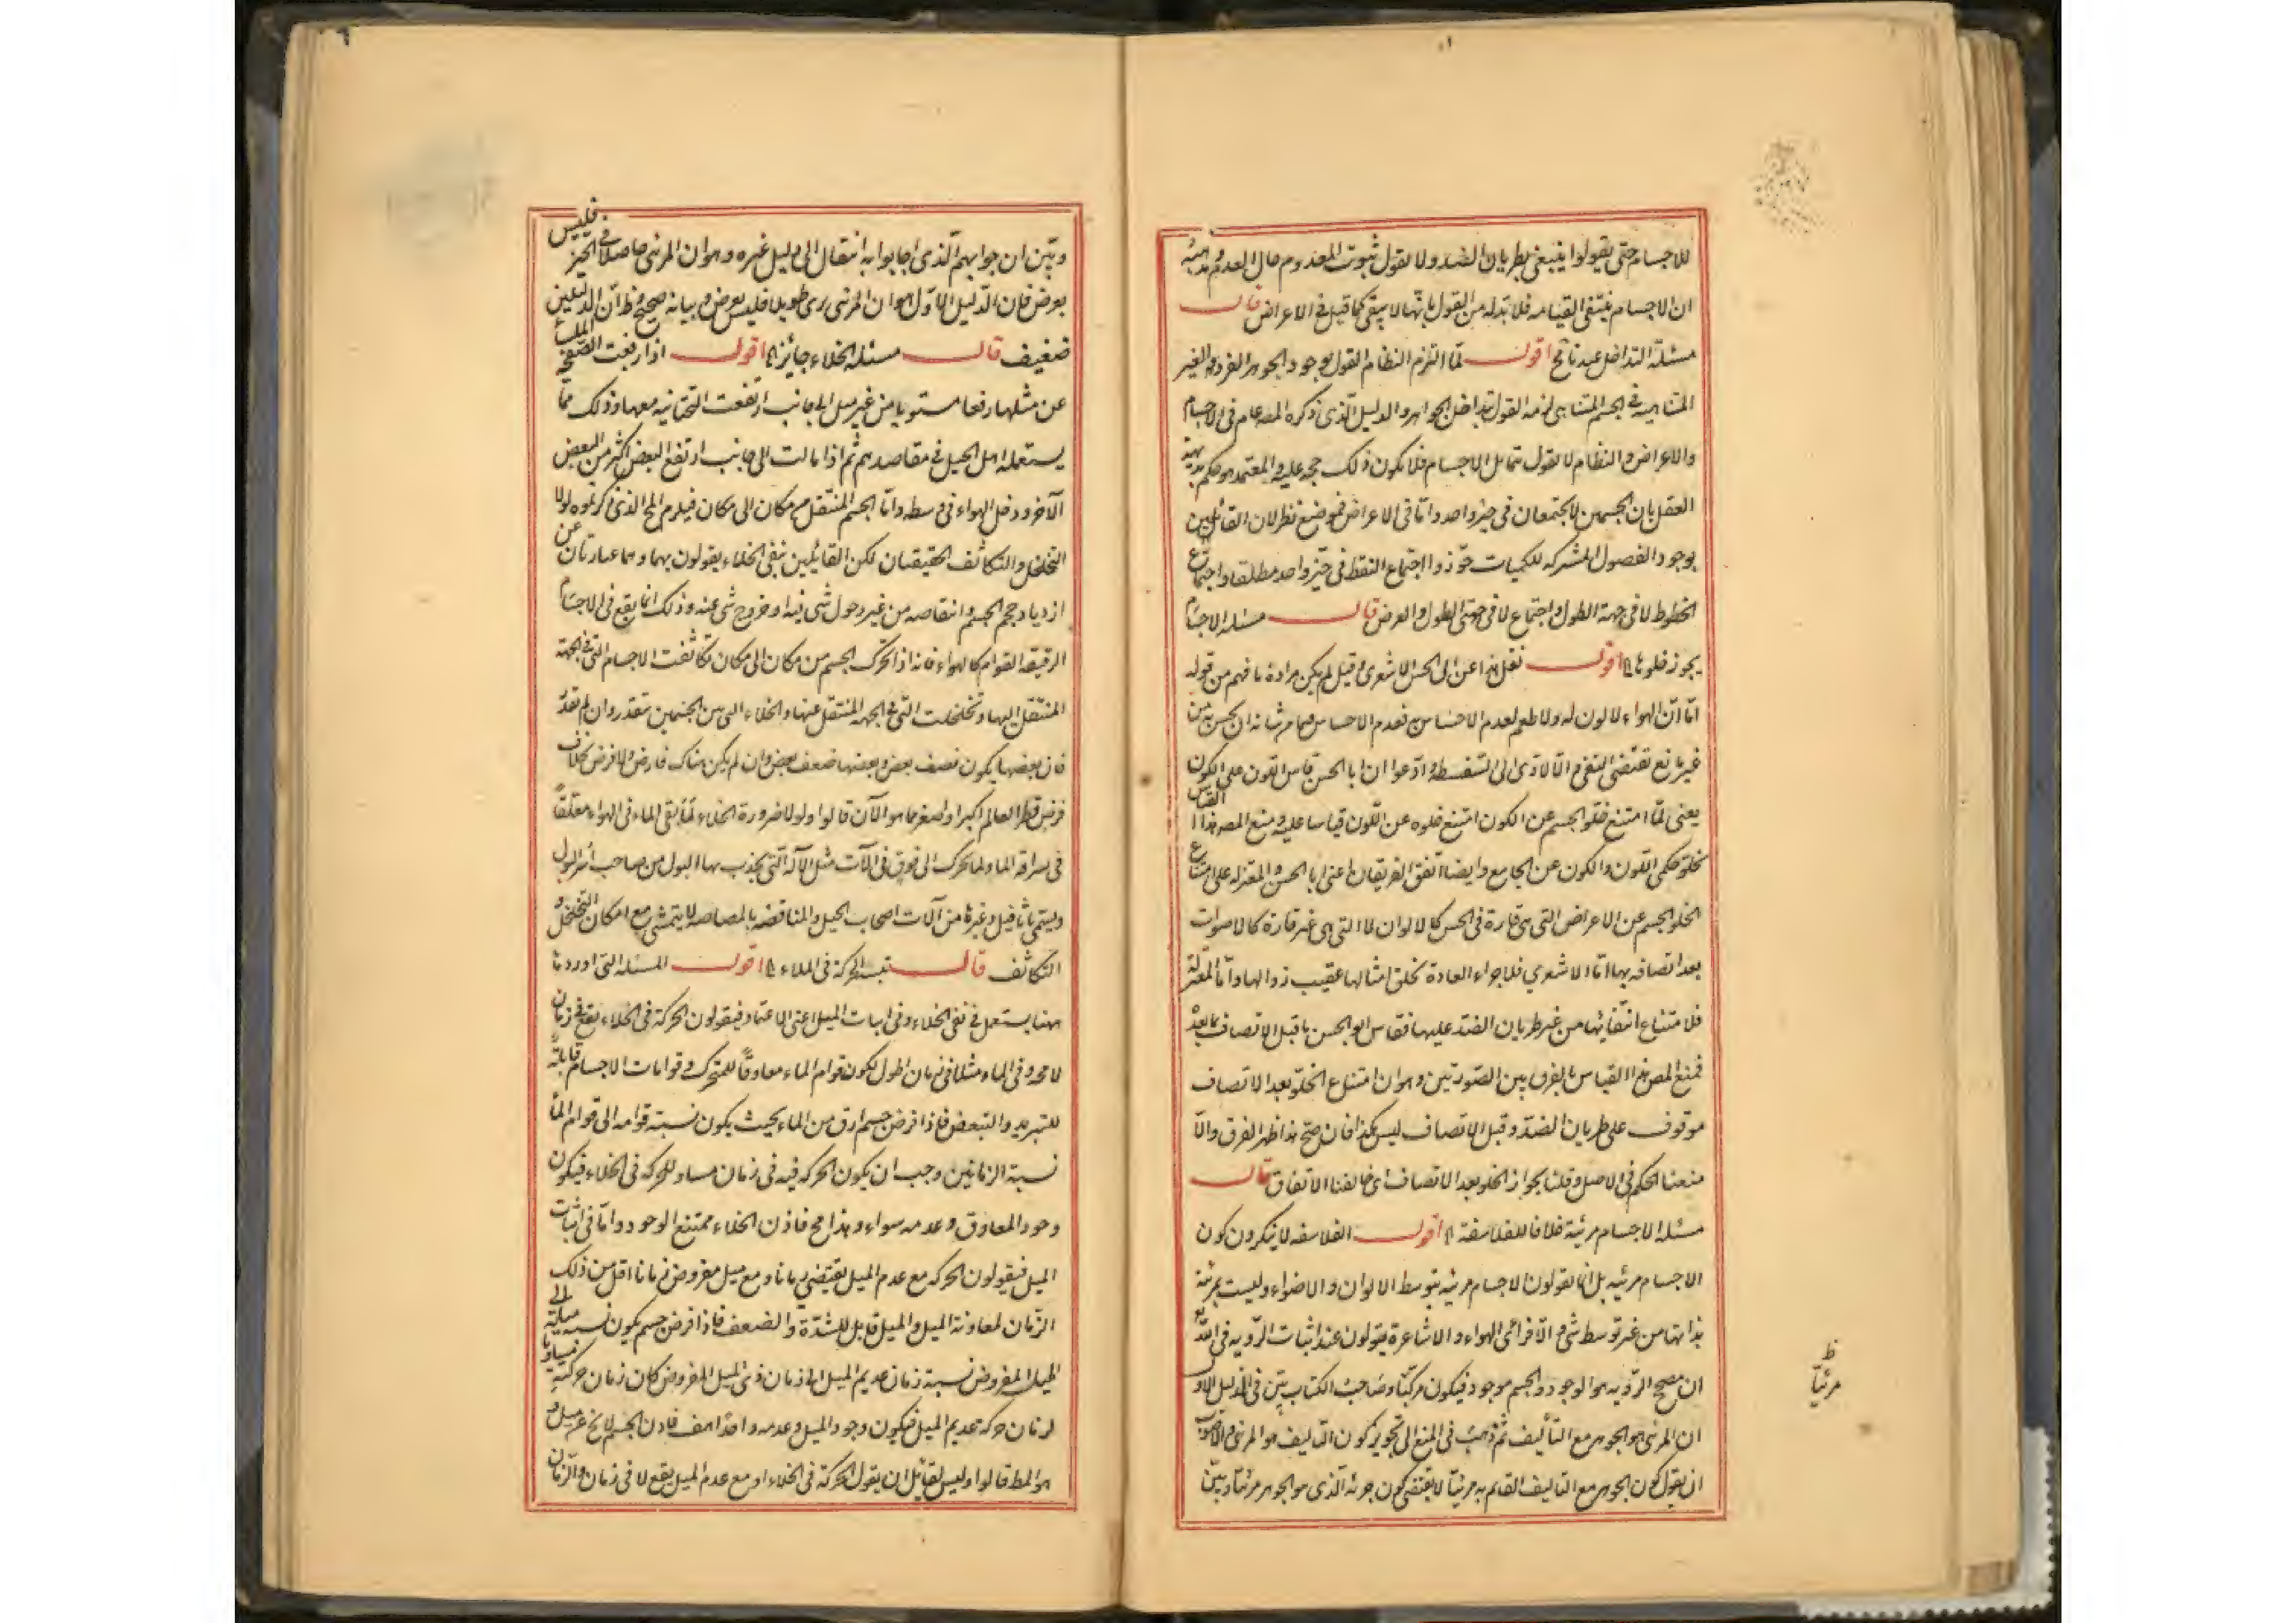 للاجسام حتى يقولوا ينبغي بطريان الضد ولا يقول بثبوت المعدوم حال العدم ومذهبه
ان الاجسام ينتفى القيامه فلا بد له من القول بانها لا يبقى كما قيل في الاعراض قال
مسئلة التداخل عندنا مح اقول لما التزم النظام القول بوجود الجوهر الفرد والغير
المتناهية في الجسم المتناهى لزمه القول بتداخل الجواهر والدليل الذى ذكره المصـ عام فى الاجسام
والاعراض والنظام لا يقول بتماثل الاجسام فلا يكون ذلك حجه عليه والمعتمد هو حكم بديهة
العقل بان الجسمين لا يجتمعان فى حيز واحد واما فى الاعراض فموضع نظر لان القائلين
بوجود الفصول المشتركه للكميات جوّزوا اجتماع النقط فى حيّز واحد مطلقا واجتماع
الخطوط لا فى جهة الطول واجتماع لا فى جهتى الطول والعرض قال مسئله الاجسام
يجوز خلوها الخ اقول نقل هذا عن ابى الحسن الاشعرى وقيل لم يكن مراده ما فهم من قوله
اما انّ الهواء لا لون له ولا طعم لعدم الاحساس به فعدم الاحساس بما من شانه ان يحس به من
غير مانع تقتضى النفى والا لادّى الى السفسطه وادّعوا ان ابا الحسن قاس اللون على الكون
يعنى لما امتنع خلو الجسم عن الكون امتنع خلوه عن اللون قياسا عليه ومنع المصـ هذا القياس
لخلو حكمى اللون والكون عن الجامع وايضا اتفق الفريقان اعنى ابا الحسن والمعتزله على امتناع
الخلو الجسم عن الاعراض التى هى قارة فى الحس كالالوان لا التى هى غير قارة كالاصوات
بعد اتصافه بها اما الاشعري فلاجراء العادة بخلق امثالها عقيب زوالها واما المعتزلة
فلامتناع انتفائها من غير طريان الضد عليها فقاس ابو الحسن ما قبل الاتصاف بما بعده
فمنع المصـ هذا القياس بالفرق بين الصّورتين وهو ان امتناع الخلوّ بعد الاتصاف
موقوف على طريان الضدّ وقبل الاتصاف ليس كذا فان صح هذا ظهر الفرق والّا
منعنا الحكم فى الاصل وقلنا بجواز الخلو بعد الاتصاف اى خالفنا الاتفاق قال
مسئله الاجسام مرئية خلافا للفلاسفة الخ اقول الفلاسفه لا ينكرون كون
الاجسام مرئيه بل انما يقولون الاجسام مرئيه بتوسط الالوان والاضواء وليست بمرئية
بذاتها من غير توسط شئ والا فرأى الهواء والاشاعرة يقولون عند اثبات الرّويه فى الله تع
ان مصحح الرّويه هو الوجود والجسم موجود فيكون مرئيّا وصاحب الكتاب بيّن فى الدليل الاول
ان المرئى هو الجوهر مع التأليف ثم ذهب فى المنع الى تجويز كون التاليف هو المرئى والاصوب
ان يقول كون الجوهر مع التاليف القايم به مرئيّا لا يقتضى كون جزئه الّذى هو الجوهر مرئيّا وبيّنا
ظ
مرئيّا
وبيّن ان جوابهم الّذى اجابوا به انتقال الى دليل غيره وهو ان المرئى حاصلا فى الحيّز فليس
بعرض فان الدّليل الاوّل هو ان المرئى يرى طويلا فليس بعرض وبيانه صحيح وظ انّ الدليلين
ضعيف قال مسئله الخلاء جائز الخ اقول اذا رفعت الصّفحة الملساء
عن مثلها رفعا مستويا من غير ميل الى جانب ارتفعت التحتانيه معها وذلك ممّا
يستعمله اهل الحيل فى مقاصدهم ثم اذا مالت الى جانب ارتفع البعض اكثر من البعض
الآخر ودخل الهواء فى وسطه وامّا الجسم المنتقل من مكان الى مكان فيلزم المح الذى ذكرتموه لولا
التخلخل والتكاثف الحقيقيان لكن القائلين بنفى الخلاء يقولون بهما وهما عبارتان عن
ازدياد حجم الجسم وانتقاصه من غير دخول شى فيه او خروج شى عنه وذلك انما يقع فى الاجسام
الرقيقه القوام كالهواء فانه اذا تحرّك الجسم من مكان الى مكان تكاثفت الاجسام التى فى الجهة
المنتقل اليها وتخلخلت التى فى الجهه المنتقل عنها والخلاء الذى بين الجسمين يتقدر وان لم تقدّر
فان بعضها يكون نصف بعض وبعضها ضعف بعض وان لم يكن هناك فارض ولا فرض بخلاف
فرض قطر العالم اكبر او اصغر مما هو الآن قالوا ولولا ضرورة الخلاء لما بقى الماء فى الهواء معلقاً
فى سراقه الماء ولما تحرك الى فوق فى الآلات مثل الآلة التى يجذب بها البول من صاحب اسر البول
ويسمى باثافيل وغيرها من آلات اصحاب الحيل والمناقضه بالمصاصه لا يتمشى مع امكان التخلخل و
التكاثف قال تنبيه الحركة فى الملاء الخ اقول المسئله التى اوردنا
ههنا يستعمل فى نفى الخلاء وفى اثبات الميل اعنى الاعتماد فيقولون الحركة فى الخلاء يقع فى زمان
لا محه وفى الماء مثلا فى زمان اطول لكون قوام الماء معاوقاً للمتحرك وقوامات الاجسام قابلة
للتبريد والتبعض فاذا فرض جسم ارق من الماء بحيث يكون نسبة قوامه الى قوام الماء
نسبة الزمانين وجب ان يكون الحركه فيه فى زمان مساو للحركه فى الخلاء فيكون
وجود المعاوق وعدمه سواء وهذا مح فاذن الخلاء ممتنع الوجود وامّا فى اثبات
الميل فيقولون الحركه مع عدم الميل يقتضى زمانا ومع ميل مفروض زمانا اقل من ذلك
الزمان لمعاونة الميل والميل قابل للشدّة والضعف فاذا فرض جسم يكون نسبة ميله الى
الميل المفروض نسبة زمان عديم الميل الى زمان ذى الميل المفروض كان زمان حركته مساويا
لزمان حركه عديم الميل فيكون وجود الميل وعدمه واحدا هف فاذن الجسم لا يخ عن ميل و
هو المط قالوا وليس لقائل ان يقول الحركة فى الخلاء او مع عدم الميل يقع لا فى زمان والزمان